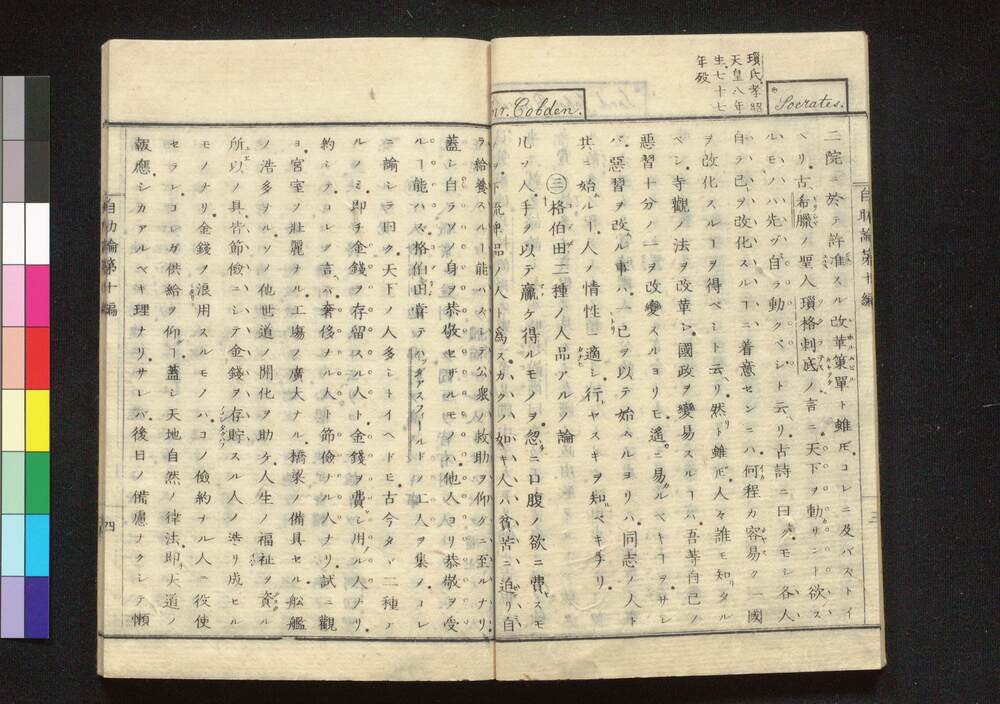 Socrates.
瑣氏孝昭
天皇八年
生七十七
年歿
自助論第十編
三
二院ニ於テ許准スル改革箪單ト雖𪜈コレニ及バズトイ
ヘリ古希臘ノ聖人瑣格剌底ノ言ニ天下ヲ動サント欲ス
ルモノハ先ヅ自ラ動クベシト云ヘリ古詩ニ曰クモシ各人
自ラ己ヲ改化スルヿニ着意センニハ何程カ容易ク一國
ヲ改化スルヿヲ得ベシト云リ然ト雖𪜈人々誰モ知タル
ベシ寺觀ノ法ヲ改革シ國政ヲ變易スルヿハ吾等自己ノ
惡習十分ノ一ヲ改變スルヨリモ遥ニ易カルベキヿヲサレ
バ惡習ヲ改ルノ事ハ一己ヲ以テ始ムルヨリハ同志ノ人ト
共ニ始ルヿ人ノ情性ニ適シ行ヤスキヲ知ベキナリ
Mr. Cobden.
㊂格伯田二種ノ人品アルノ論
凡ソ人手ヲ以テ贏ケ得ルモノヲ忽ニ口腹ノ欲ニ費スモ
ノヲ下流卑品ノ人ト爲スカクノ如キ人ハ貧苦ニ迫リ自
ラ給養スルヿ能ハズシテ公衆ノ救助ヲ仰グニ至ルナリ
蓋シ自ラソノ身ヲ恭敬セザルモノハ他人ヨリ恭敬ヲ受
ルヿ能ハズ格伯田嘗テハッダアスフィールドノ工人ヲ集メコレ
ニ諭シテ曰ク天下ノ人多シトイヘドモ古今タヾ二種ア
ルノミ即チ金錢ヲ存留スル人ト金錢ヲ費シ用ル人ナリ
約シテコレヲ言バ奢侈ナル人ト節儉ナル人ナリ試ニ觀
ヨ宮室ノ壯麗ナル工塲ノ廣大ナル橋梁ノ備具セル舩艦
ノ浩多ナルソノ他世道ノ開化ヲ助ケ人生ノ福祉ヲ資ル
所以ノ具皆節儉ニシテ金錢ヲ存貯スル人ノ造リ成セル
モノナリ金錢ヲ浪用スルモノハコノ儉約ナル人ニ役使
セラレコレガ供給ヲ仰グヿ蓋シ天地自然ノ律法即天道ノ
報應シカアルベキ理ナリサレバ後日ノ備慮ナクシテ懶
自助論第十編
四